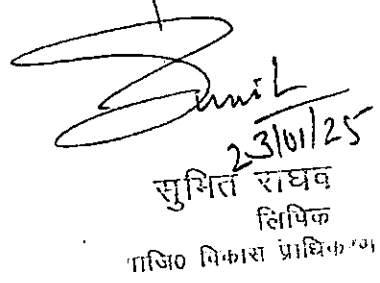 Sumit
23/01/25
सुमित राघव
लिपिक
गाजि० विकास प्राधिकरण